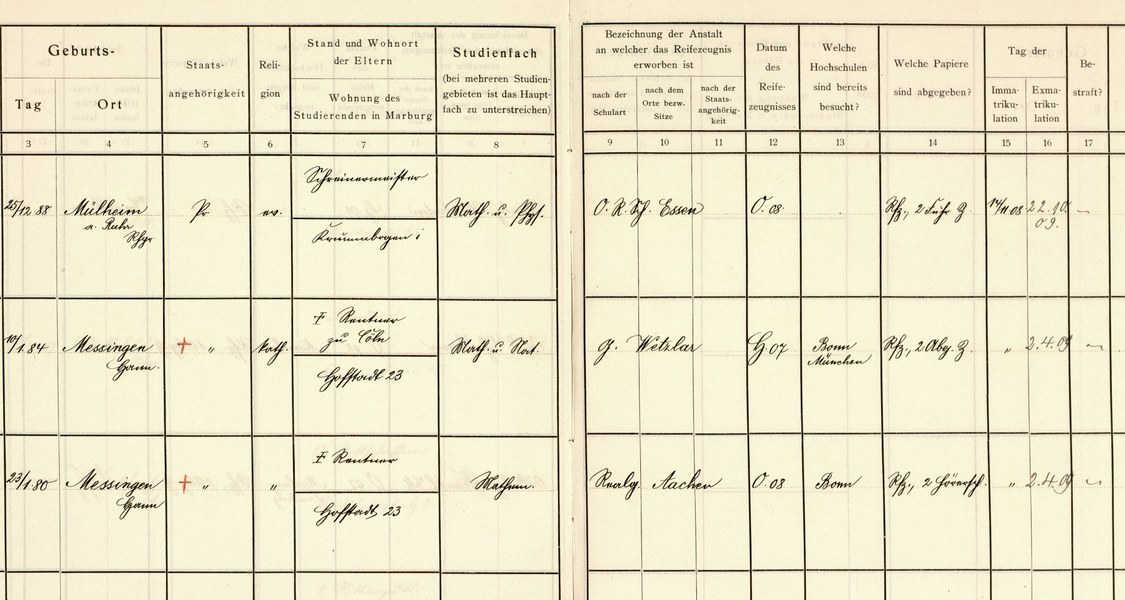 Geburts-
Tag
Ort
Staats-
angehörigkeit
Reli-
gion
Stand und Wohnort
der Eltern
Wohnung des
Studierenden in Marburg
Studienfach
(bei mehreren Studien-
gebieten ist das Haupt-
fach zu unterstreichen)
Bezeichnung der Anstalt
an welcher das Reifezeugnis
erworben ist
nach der
Schulart
nach dem
Orte bezw.
Sitze
nach der
Staats-
angehörig-
keit
Datum
des
Reife-
zeugnisses
Welche
Hochschulen
sind bereits
besucht?
Welche Papiere
sind abgegeben?
Tag der
Imma-
triku-
lation
Exma-
triku-
lation
Be-
straft?
3 4 5 6 7 8 9 10 11 12 13 14 15 16 17
25/12 88
Mülheim
a. Ruhr
Pr
ev.
Schreinermeister
Math. u. Phys.
O. R. Sch. Essen
O. 08.
Rfz., 2 Führ Z.
14/11 08
22.10.
09.
–
10/1.84
Messingen
Hann.
+ "
kath.
† Rentner
zu Cöln
Hofstadt 23
Math. u. Nat.
G. Wetzlar
H. 07
Bonn
München
Rfz., 2 Abg. Z.
"
2.4.09
–
23/1.80
Messingen
Hann
+ "
"
† Rentner
Hofstadt, 23
Mathem.
Realg. Aachen
O. 08
Bonn
Rfz., 2 Hörersch.
"
2.4.09
–